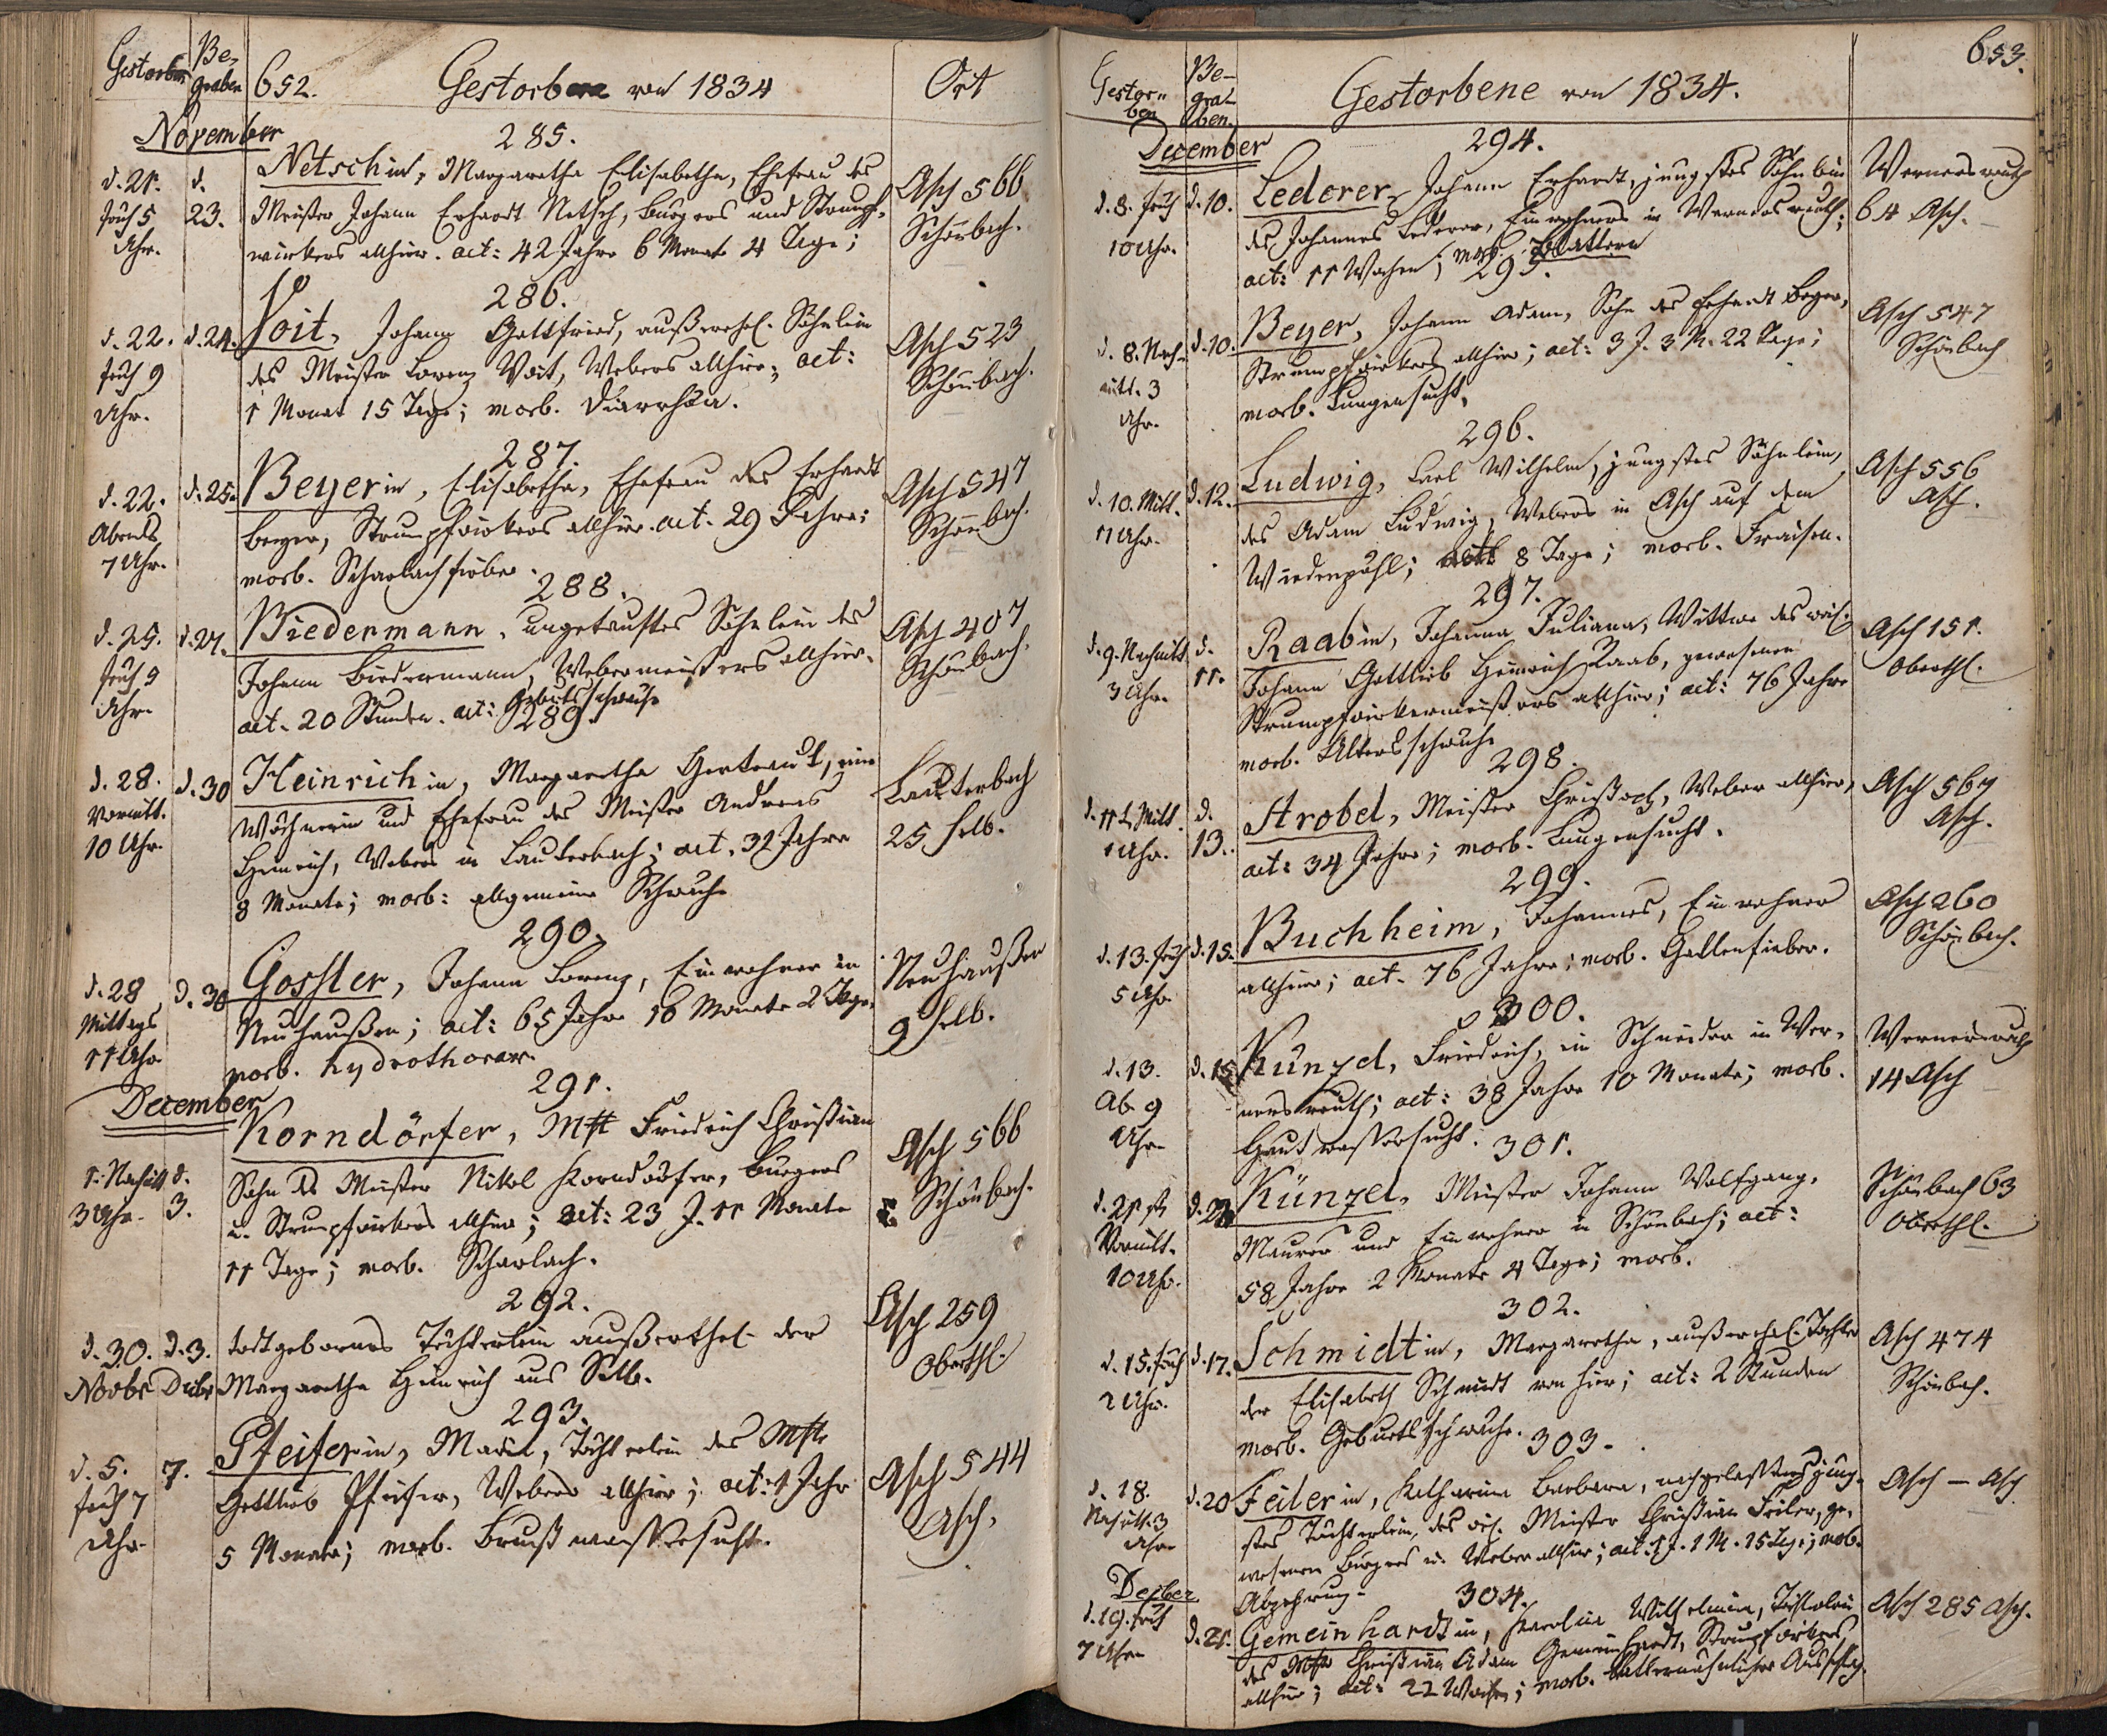 Gestorben
Be-
graben
652.
Gestorbene von 1834
Ort
November
285.
d. 21. früh 5 Uhr.
d. 23.
Netschin, Margaretha Elisabetha, Ehefrau des
Meister Johann Erhardt Netsch, Burgers und Strumpf-
wirkers allhier. aet: 42 Jahre 6 Monate 4 Tage;
Asch 566
Schönbach.
286.
d. 22. früh 9 Uhr.
d. 24.
Voit, Johann Gottfried, außerehel. Söhnlein
des Meister Lorenz Voit, Webers allhier; aet:
1 Monat 15 Tage; morb. Diarrhöa.
Asch 523
Schönbach.
287.
d. 22. Abends 7 Uhr.
d. 25.
Beyerin, Elisabetha, Ehefrau des Erhardt
Beyer, Strumpfwirkers allhier. aet. 29 Jahre;
morb. Scharlachfieber.
Asch 547
Schönbach.
288.
d. 25. früh 9 Uhr.
d. 27.
Biedermann, ungetauftes Söhnlein des
Johann Biedermann, Webermeisters allhier.
aet. 20 Stunden. aet: Geburtsschwäche
Asch 407
Schönbach.
289.
d. 28. Vormitt. 10 Uhr.
d. 30
Heinrichin, Margaretha Gertraud, eine
Wöchnerin und Ehefrau des Meister Andreas
Heinrich, Webers in Lauterbach; aet. 32 Jahre
8 Monate; morb: allgemeine Schwäche
Lauterbach
25 Selb.
290.
d. 28 Mittags 11 Uhr
d. 30
Gossler, Johann Lorenz, Einwohner in
Neuhaußen; aet: 65 Jahre 10 Monate 2 Tage.
morb. hydrothorax.
Neuhaußen
9 Selb.
December
291.
1. Nachmitt 3 Uhr.
d. 3.
Korndörfer, Mstr Friedrich Christian
Sohn des Meister Nikol Korndörfer, Burgers
u. Strumpfwirkers allhier; aet: 23 J. 11 Monate
11 Tage; morb. Scharlach.
Asch 566
Schönbach.
292.
d. 30. Novbr
d. 3. Decbr
todtgebornes Töchterlein außerehel. der
Margaretha Heinrich aus Selb.
Asch 259
Oberthl.
293.
d. 5. früh 7 Uhr
7.
Pfeiferin, Maria, Töchterlein des Mstr
Gottlieb Pfeifer, Webers allhier; aet: 1 Jahr
5 Monate; morb. Brustwassersucht.
Asch 544
Asch.
653.
Gestor-
ben
Be-
gra-
ben.
Gestorbene von 1834.
December
294.
d. 8. früh 10 Uhr.
d. 10.
Lederer, Johann Erhardt, jüngstes Söhnlein
des Johannes Lederer, Einwohners in Wernersreuth;
aet: 11 Wochen; morb. Blattern
Wernersreuth
64 Asch.
295.
d. 8. Nach-
mitt. 3
Uhr.
d. 10.
Beyer, Johann Adam, Sohn des Erhardt Beyer,
Strumpfwirkers allhier; aet: 3 J. 3 M. 22 Tage;
morb. Lungensucht.
Asch 547
Schönbach
296.
d. 10. Mitt. 11 Uhr.
d. 12.
Ludwig, Carl Wilhelm, jüngstes Söhnlein,
des Adam Ludwig, Webers in Asch auf dem
Wiedenpühl; aet: 8 Tage; morb. Fraisen.
Asch 556
Asch.
297.
d. 9. Nachmitt 3 Uhr.
d. 11.
Raabin, Johanna Juliana, Wittwe des weil.
Johann Gottlieb Heinrich Raab, gewesenen
Strumpfwirkermeisters allhier; aet: 76 Jahre
morb. Altersschwäche
Asch 151.
Oberthl.
298.
1 Uhr.
d. 13.
Strobel, Meister Christoph, Weber allhier,
aet: 34 Jahre; morb. Lungensucht.
Asch 567
Asch.
299.
d. 13. früh 5 Uhr
d. 15.
Buchheim, Johannes, Einwohner
allhier; aet. 76 Jahre; morb. Gallenfieber.
Asch 260
Schönbach.
300.
d. 13. Ab. 9 Uhr
d. 15
Künzel, Friedrich, ein Schneider in Wer-
nersreuth; aet: 38 Jahre 10 Monate; morb.
Hautwassersucht.
Wernersreuth
14 Asch
301.
d. 21 Vormitt. 10 Uhr.
Künzel, Meister Johann Wolfgang,
Maurer und Einwohner in Schönbach; aet:
58 Jahre 2 Monate 4 Tage; morb.
Schönbach 63
Oberthl.
302.
d. 15. früh 2 Uhr.
d. 17.
Schmidtin, Margaretha, außerehel. Tochter
der Elisabeth Schmidt von hier; aet: 2 Stunden
morb. Geburtsschwäche.
Asch 474
Schönbach.
303.
d. 18. Nachmitt. 3 Uhr
d. 20
Feilerin, Katharina Barbara, nachgelassenes jüng-
stes Töchterlein, des weil. Meister Christian Feiler, ge-
wesenen Burgers u. Weber allhier; aet. 1 J. 1 M. 15 Tge; morb.
Abzehrung.
Asch — Asch
Decber
304.
d. 19. früh 7 Uhr
d. 21.
Gemeinhardtin, Karolina Wilhelmina, Töchterlein
des Mstr Christian Adam Gemeinhardt, Strumpfwirkers
allhier; aet: 22 Wochen; morb. blatternähnlicher Ausschlag.
Asch 285 Asch.